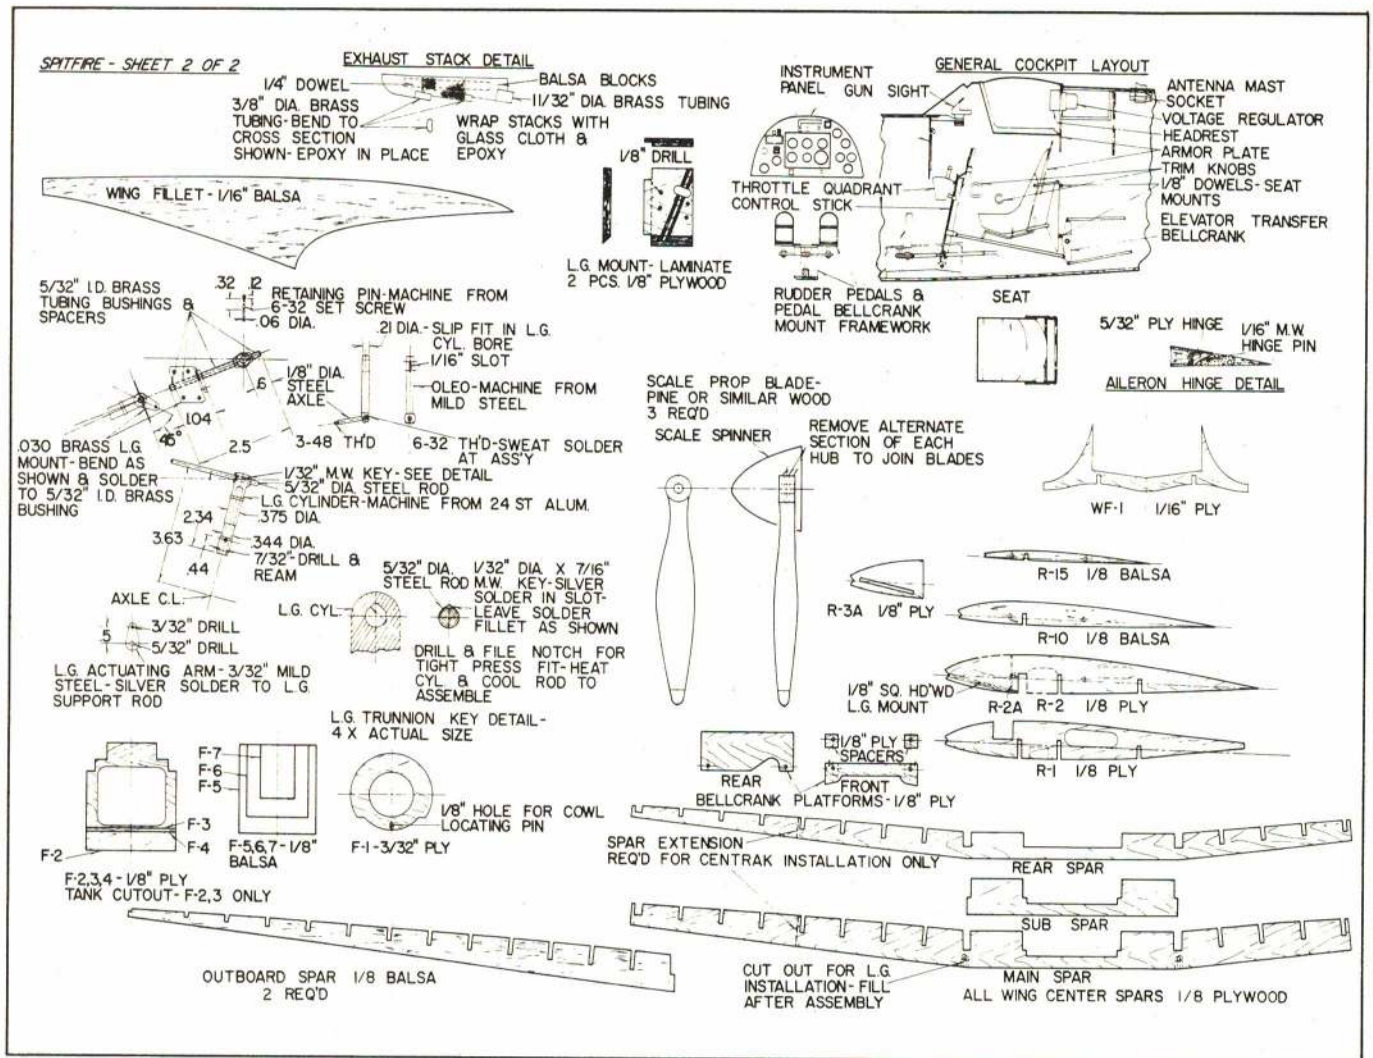 SPITFIRE - SHEET 2 OF 2
EXHAUST STACK DETAIL
1/4" DOWEL
3/8" DIA. BRASS
TUBING-BEND TO
CROSS SECTION
SHOWN-EPOXY IN PLACE
BALSA BLOCKS
11/32" DIA. BRASS TUBING
WRAP STACKS WITH
GLASS CLOTH &
EPOXY
WING FILLET-1/16" BALSA
1/8" DRILL
L.G. MOUNT-LAMINATE
2 PCS. 1/8" PLYWOOD
GENERAL COCKPIT LAYOUT
INSTRUMENT
PANEL GUN SIGHT
ANTENNA MAST
SOCKET
VOLTAGE REGULATOR
HEADREST
ARMOR PLATE
TRIM KNOBS
1/8" DOWELS-SEAT
MOUNTS
ELEVATOR TRANSFER
BELLCRANK
THROTTLE QUADRANT
CONTROL STICK
RUDDER PEDALS &
PEDAL BELLCRANK
MOUNT FRAMEWORK
SEAT
5/32" PLY HINGE
1/16" M.W.
HINGE PIN
AILERON HINGE DETAIL
5/32" I.D. BRASS
TUBING BUSHINGS &
SPACERS
.32 .12
RETAINING PIN-MACHINE FROM
6-32 SET SCREW
.06 DIA.
.21 DIA.-SLIP FIT IN L.G.
CYL. BORE
1/16" SLOT
OLEO-MACHINE FROM
MILD STEEL
.6
1/8" DIA.
STEEL
AXLE
1.04
45°
2.5
3-48 TH'D
6-32 TH'D-SWEAT SOLDER
AT ASS'Y
.030 BRASS L.G.
MOUNT-BEND AS
SHOWN & SOLDER
TO 5/32" I.D. BRASS
BUSHING
1/32" M.W. KEY-SEE DETAIL
5/32" DIA. STEEL ROD
L.G. CYLINDER-MACHINE FROM 24 ST ALUM.
.375 DIA.
2.34
3.63
.344 DIA.
7/32"-DRILL &
REAM
.44
AXLE C.L.
.5
3/32" DRILL
5/32" DRILL
L.G. ACTUATING ARM-3/32" MILD
STEEL-SILVER SOLDER TO L.G.
SUPPORT ROD
L.G. CYL.
5/32" DIA.
STEEL ROD
1/32" DIA. X 7/16"
M.W. KEY-SILVER
SOLDER IN SLOT-
LEAVE SOLDER
FILLET AS SHOWN
DRILL & FILE NOTCH FOR
TIGHT PRESS FIT-HEAT
CYL & COOL ROD TO
ASSEMBLE
L.G. TRUNNION KEY DETAIL-
4 X ACTUAL SIZE
SCALE PROP BLADE-
PINE OR SIMILAR WOOD
3 REQ'D
SCALE SPINNER
REMOVE ALTERNATE
SECTION OF EACH
HUB TO JOIN BLADES
WF-1 1/16" PLY
R-3A 1/8" PLY
R-15 1/8 BALSA
R-10 1/8 BALSA
1/8" SQ. HD'WD
L.G. MOUNT
R-2A R-2 1/8 PLY
R-1 1/8 PLY
F-2
F-3
F-4
F-2,3,4-1/8" PLY
TANK CUTOUT-F-2,3 ONLY
F-7
F-6
F-5
F-5,6,7-1/8"
BALSA
1/8" HOLE FOR COWL
LOCATING PIN
F-1-3/32" PLY
1/8" PLY
SPACERS
REAR
FRONT
BELLCRANK PLATFORMS-1/8" PLY
SPAR EXTENSION
REQ'D FOR CENTRAK INSTALLATION ONLY
REAR SPAR
SUB SPAR
OUTBOARD SPAR 1/8 BALSA
2 REQ'D
CUT OUT FOR L.G.
INSTALLATION-FILL
AFTER ASSEMBLY
MAIN SPAR
ALL WING CENTER SPARS 1/8 PLYWOOD